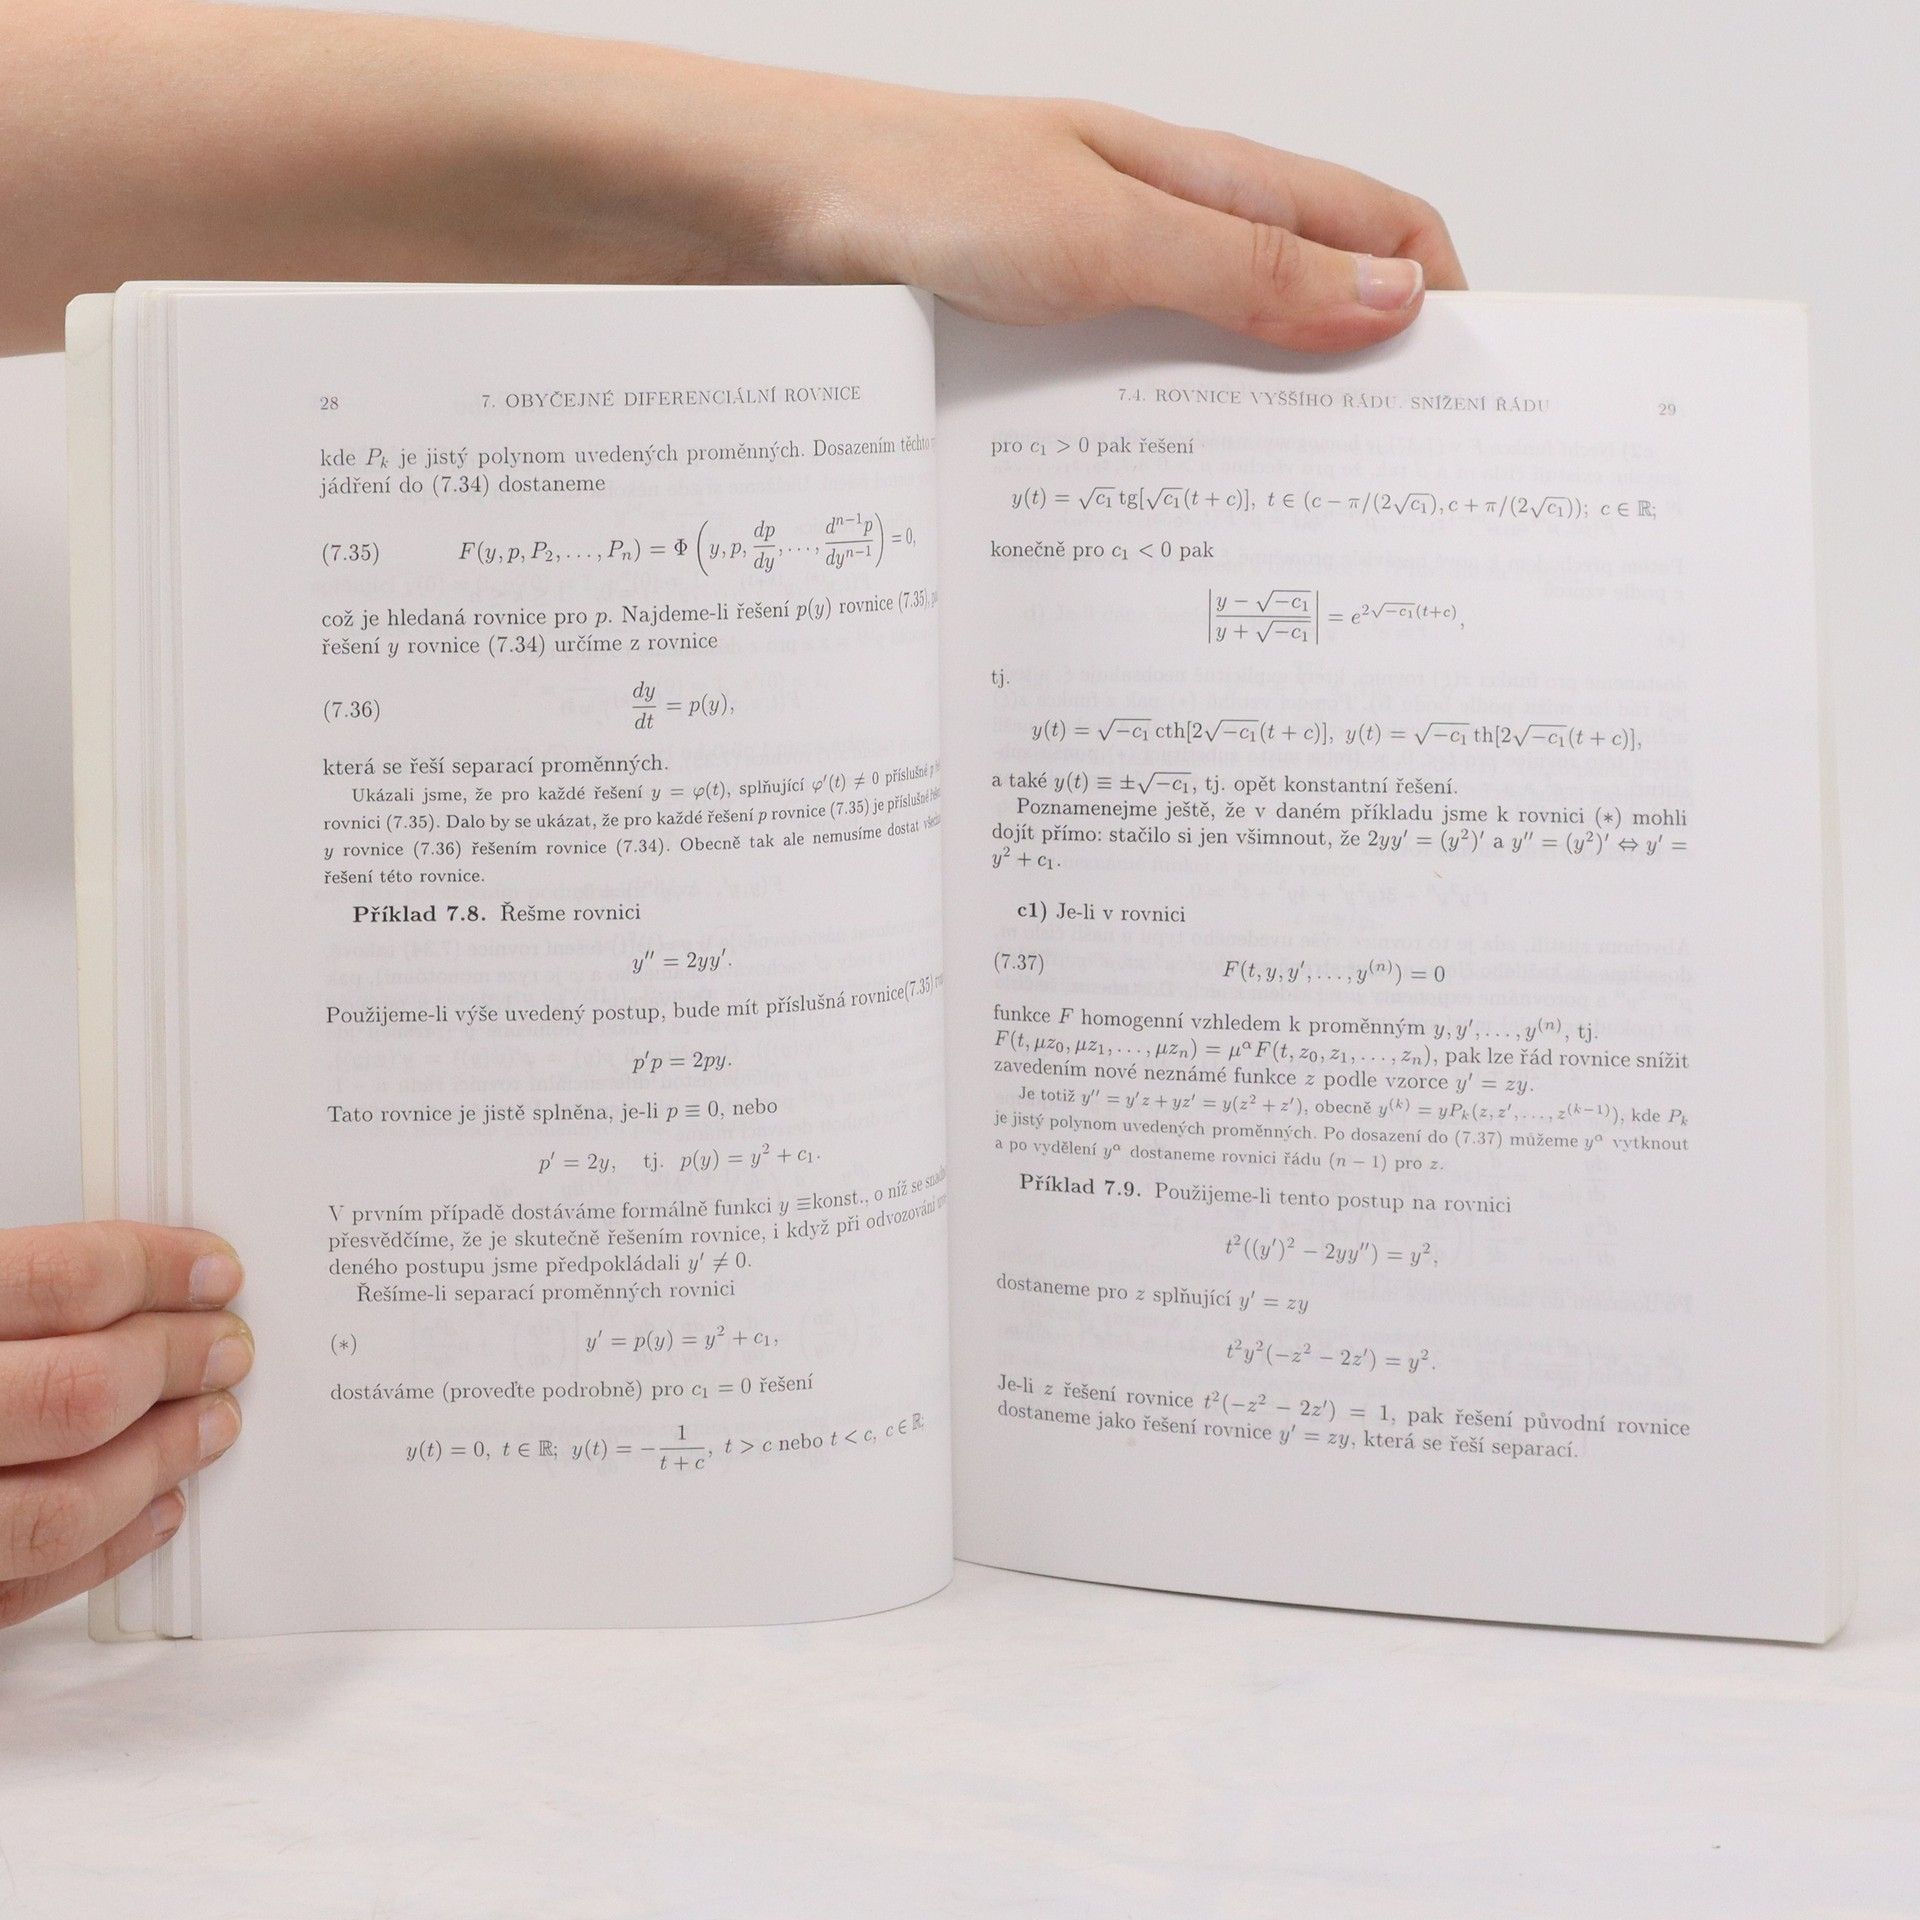 28 7. OBYČEJNÉ DIFERENCIÁLNÍ ROVNICE
kde P_k je jistý polynom uvedených proměnných. Dosazením těchto
jádření do (7.34) dostaneme
(7.35) F(y, p, P_2, . . . , P_n) = Φ (y, p, dp/dy, . . . , d^{n−1}p/dy^{n−1}) = 0,
což je hledaná rovnice pro p. Najdeme-li řešení p(y) rovnice (7.35),
řešení y rovnice (7.34) určíme z rovnice
(7.36) dy/dt = p(y),
která se řeší separací proměnných.
Ukázali jsme, že pro každé řešení y = φ(t), splňující φ′(t) ≠ 0 příslušné p
rovnici (7.35). Dalo by se ukázat, že pro každé řešení p rovnice (7.35) je příslušné
y rovnice (7.36) řešením rovnice (7.34). Obecně tak ale nemusíme dostat
řešení této rovnice.
Příklad 7.8. Řešme rovnici
y″ = 2yy′.
Použijeme-li výše uvedený postup, bude mít příslušná rovnice(7.35)
p′p = 2py.
Tato rovnice je jistě splněna, je-li p ≡ 0, nebo
p′ = 2y, tj. p(y) = y² + c₁.
V prvním případě dostáváme formálně funkci y ≡konst., o níž se
přesvědčíme, že je skutečně řešením rovnice, i když při odvozování
deného postupu jsme předpokládali y′ ≠ 0.
Řešíme-li separací proměnných rovnici
(*) y′ = p(y) = y² + c₁,
dostáváme (proveďte podrobně) pro c₁ = 0 řešení
y(t) = 0, t ∈ ℝ; y(t) = −1/(t + c), t > c nebo t < c, c ∈ ℝ;
7.4. ROVNICE VYŠŠÍHO ŘÁDU. SNÍŽENÍ ŘÁDU 29
pro c₁ > 0 pak řešení
y(t) = √c₁ tg[√c₁(t + c)], t ∈ (c − π/(2√c₁), c + π/(2√c₁)); c ∈ ℝ;
konečně pro c₁ < 0 pak
|(y − √−c₁)/(y + √−c₁)| = e^{2√−c₁(t+c)},
tj.
y(t) = √−c₁ cth[2√−c₁(t + c)], y(t) = √−c₁ th[2√−c₁(t + c)],
a také y(t) ≡ ±√−c₁, tj. opět konstantní řešení.
Poznamenejme ještě, že v daném příkladu jsme k rovnici (*) mohli
dojít přímo: stačilo si jen všimnout, že 2yy′ = (y²)′ a y″ = (y²)′ ⇔ y′ =
y² + c₁.
c1) Je-li v rovnici
(7.37) F(t, y, y′, . . . , y^{(n)}) = 0
funkce F homogenní vzhledem k proměnným y, y′, . . . , y^{(n)}, tj.
F(t, μz₀, μz₁, . . . , μz_n) = μ^α F(t, z₀, z₁, . . . , z_n), pak lze řád rovnice snížit
zavedením nové neznámé funkce z podle vzorce y′ = zy.
Je totiž y″ = y′z + yz′ = y(z² + z′), obecně y^{(k)} = yP_k(z, z′, . . . , z^{(k−1)}), kde P_k
je jistý polynom uvedených proměnných. Po dosazení do (7.37) můžeme y^α vytknout
a po vydělení y^α dostaneme rovnici řádu (n − 1) pro z.
Příklad 7.9. Použijeme-li tento postup na rovnici
t²((y′)² − 2yy″) = y²,
dostaneme pro z splňující y′ = zy
t²y²(−z² − 2z′) = y².
Je-li z řešení rovnice t²(−z² − 2z′) = 1, pak řešení původní rovnice
dostaneme jako řešení rovnice y′ = zy, která se řeší separací.